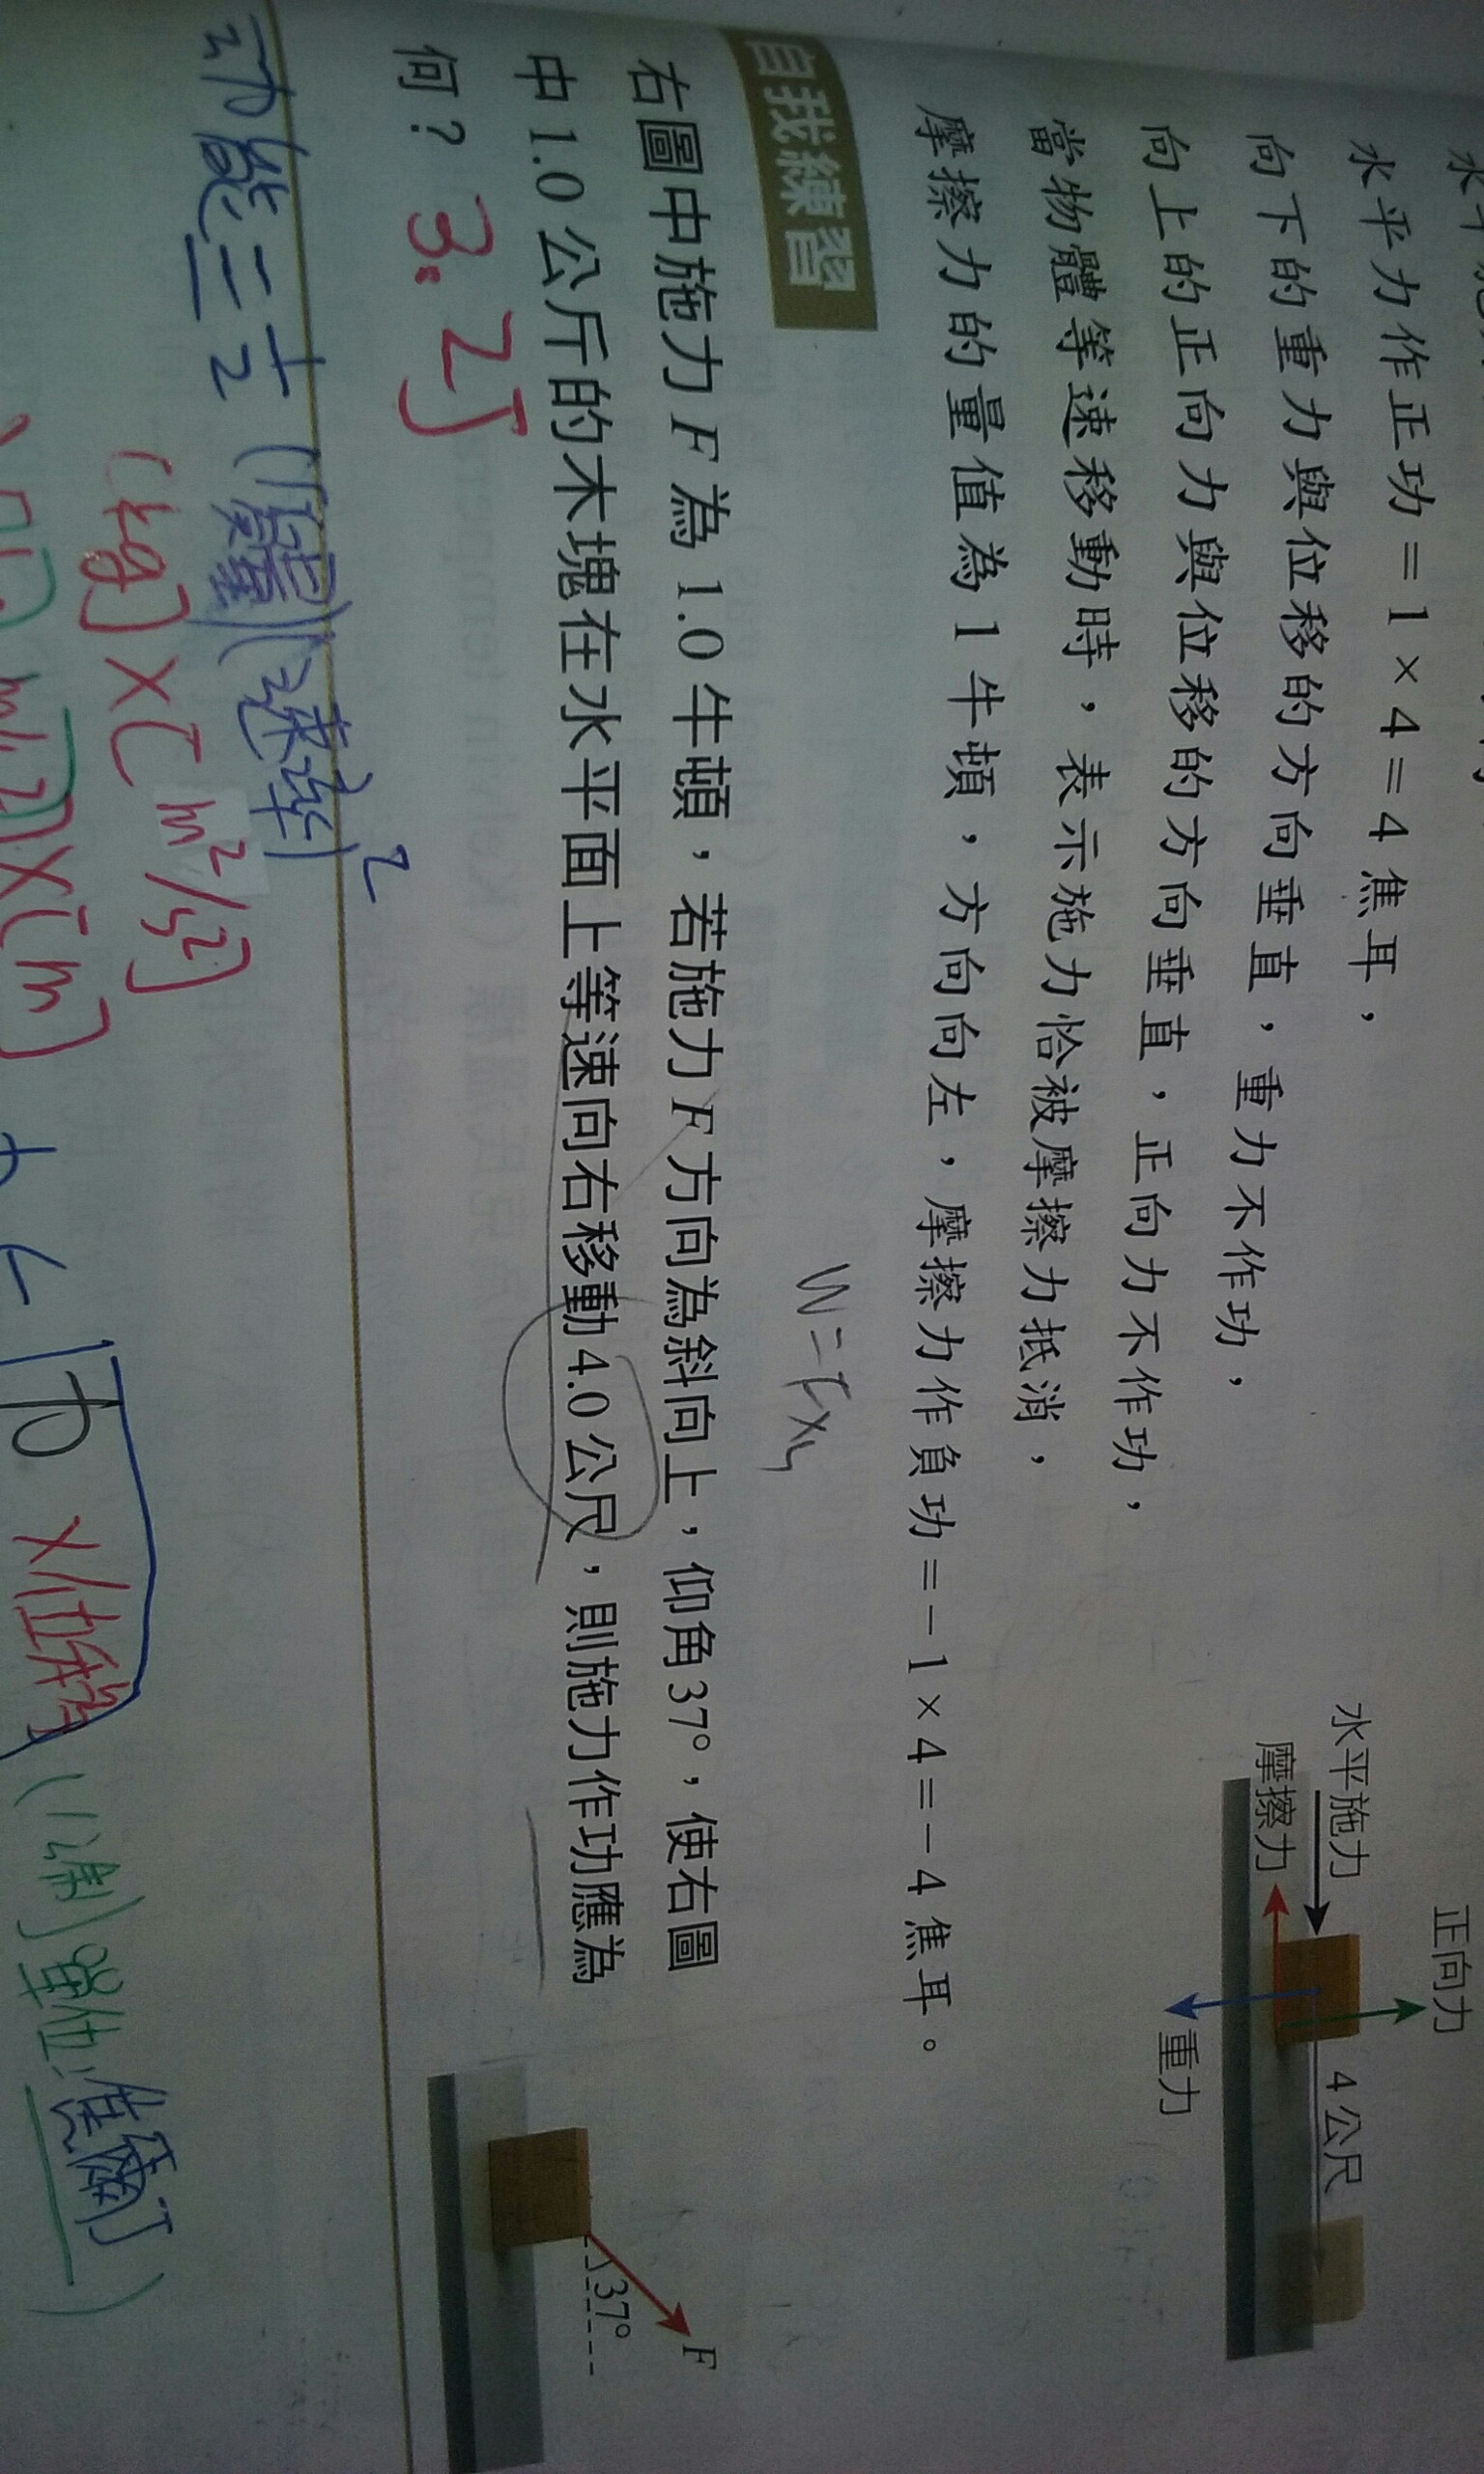 水平力作正功＝1×4＝4焦耳，
向下的重力與位移的方向垂直，重力不作功，
向上的正向力與位移的方向垂直，正向力不作功，
當物體等速移動時，表示施力恰被摩擦力抵消，
摩擦力的量值為1牛頓，方向向左，摩擦力作負功＝－1×4＝－4焦耳。
正向力
水平施力
4公尺
摩擦力
重力
自我練習
W=F×S
右圖中施力F為1.0牛頓，若施力F方向為斜向上，仰角37°，使右圖
中1.0公斤的木塊在水平面上等速向右移動4.0公尺，則施力作功應為
何？3.2J
F
37°
動能=½(質量)(速率)²
(kg)×[m²/s²]
×[m]
力×位移